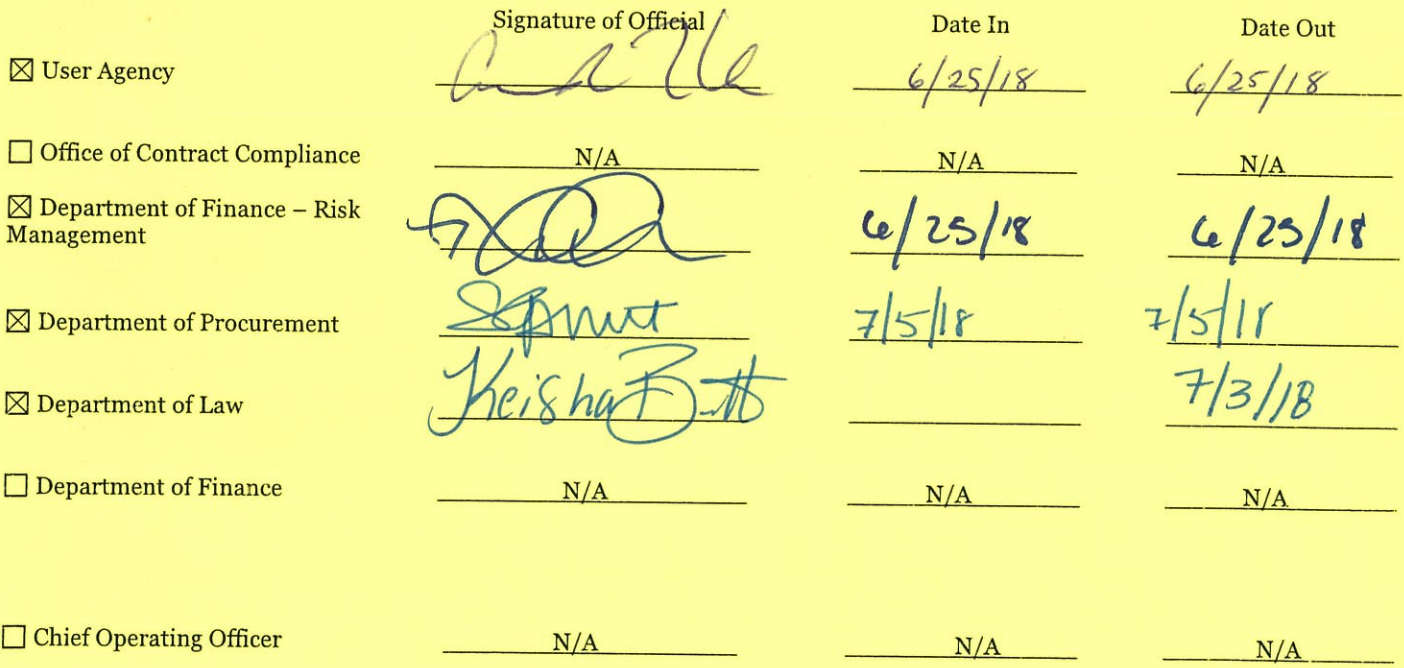 Signature of Official Date In Date Out
☒ User Agency 6/25/18 6/25/18
☐ Office of Contract Compliance N/A N/A N/A
☒ Department of Finance – Risk
Management 6/25/18 6/25/18
☒ Department of Procurement 7/5/18 7/5/18
☒ Department of Law Keisha 7/3/18
☐ Department of Finance N/A N/A N/A
☐ Chief Operating Officer N/A N/A N/A